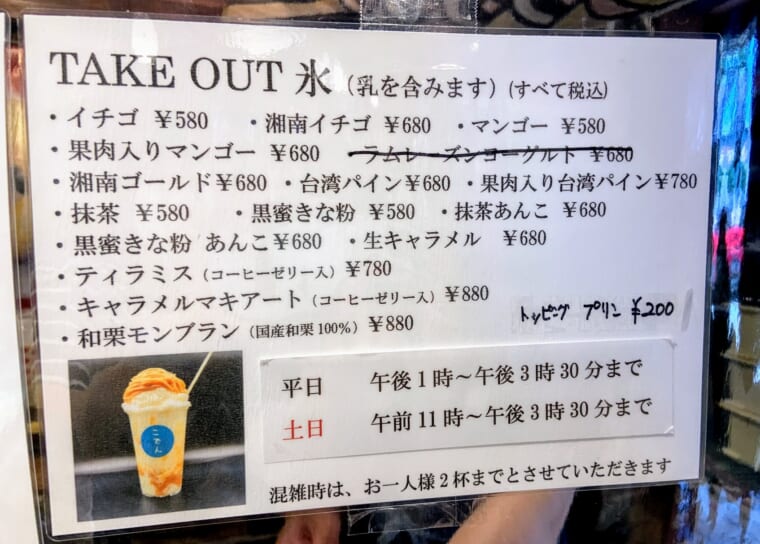 TAKE OUT 氷 (乳を含みます) (すべて税込)
・イチゴ ¥580 ・湘南イチゴ ¥680 ・マンゴー ¥580
・果肉入りマンゴー ¥680 ラムレーズンヨーグルト ¥680
・湘南ゴールド¥680 ・台湾パイン¥680 ・果肉入り台湾パイン¥780
・抹茶 ¥580 ・黒蜜きな粉 ¥580 ・抹茶あんこ ¥680
・黒蜜きな粉 あんこ¥680 ・生キャラメル ¥680
・ティラミス (コーヒーゼリー入) ¥780
・キャラメルマキアート (コーヒーゼリー入) ¥880
・和栗モンブラン (国産和栗100%) ¥880
トッピング プリン ¥200
こでん
平日 午後1時～午後3時30分まで
土日 午前11時～午後3時30分まで
混雑時は、お一人様2杯までとさせていただきます